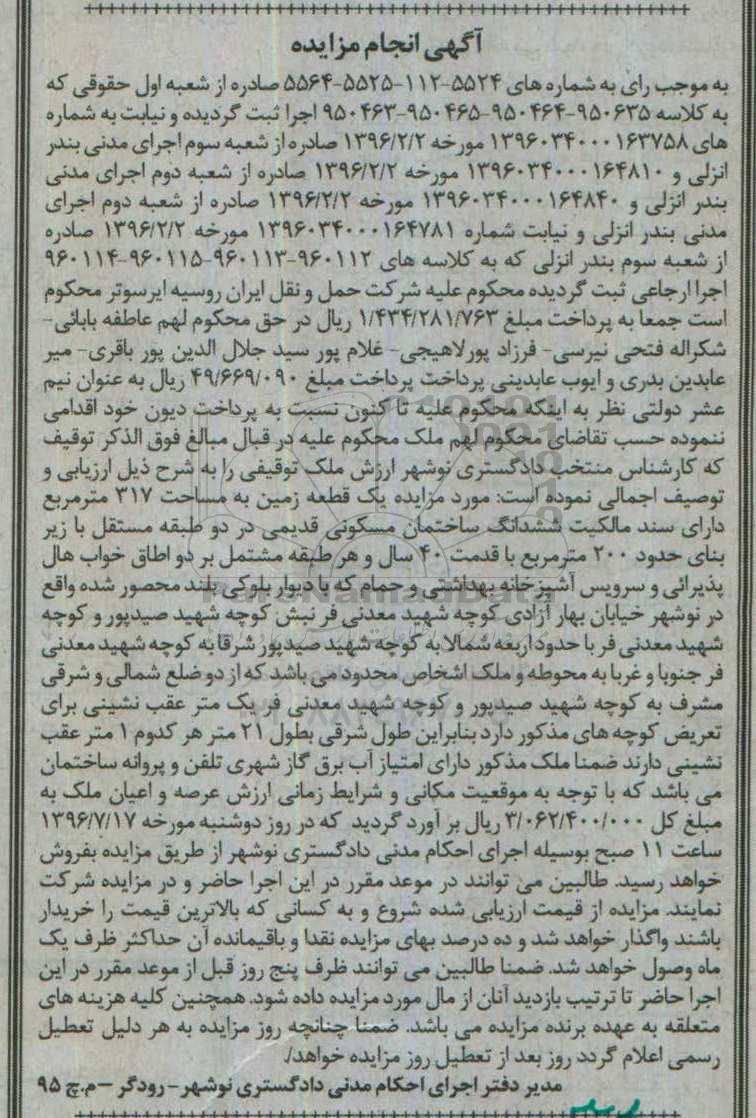 آگهی انجام مزایده
به موجب رای به شماره های ۵۵۲۴-۱۱۲-۵۵۲۵-۵۵۶۴ صادره از شعبه اول حقوقی که
به کلاسه ۹۵۰۶۳۵-۹۵۰۴۶۴-۹۵۰۴۶۵-۹۵۰۴۶۳ اجرا ثبت گردیده و نیابت به شماره
های ۱۳۹۶۰۳۴۰۰۰۱۶۳۷۵۸ مورخه ۱۳۹۶/۲/۲ صادره از شعبه سوم اجرای مدنی بندر
انزلی و ۱۳۹۶۰۳۴۰۰۰۱۶۴۸۱۰ مورخه ۱۳۹۶/۲/۲ صادره از شعبه دوم اجرای مدنی
بندر انزلی و ۱۳۹۶۰۳۴۰۰۰۱۶۴۸۴۰ مورخه ۱۳۹۶/۲/۲ صادره از شعبه دوم اجرای
مدنی بندر انزلی و نیابت شماره ۱۳۹۶۰۳۴۰۰۰۱۶۴۷۸۱ مورخه ۱۳۹۶/۲/۲ صادره
از شعبه سوم بندر انزلی که به کلاسه های ۹۶۰۱۱۲-۹۶۰۱۱۳-۹۶۰۱۱۵-۹۶۰۱۱۴
اجرا ارجاعی ثبت گردیده محکوم علیه شرکت حمل و نقل ایران روسیه ایرسوتر محکوم
است جمعا به پرداخت مبلغ ۱/۴۳۴/۲۸۱/۷۶۳ ریال در حق محکوم لهم عاطفه بابائی-
شکراله فتحی نیرسی- فرزاد پورلاهیجی- غلام پور سید جلال الدین پور باقری- میر
عابدین بدری و ایوب عابدینی پرداخت پرداخت مبلغ ۴۹/۶۶۹/۰۹۰ ریال به عنوان نیم
عشر دولتی نظر به اینکه محکوم علیه تا کنون نسبت به پرداخت دیون خود اقدامی
ننموده حسب تقاضای محکوم لهم ملک محکوم علیه در قبال مبالغ فوق الذکر توقیف
که کارشناس منتخب دادگستری نوشهر ارزش ملک توقیفی را به شرح ذیل ارزیابی و
توصیف اجمالی نموده است: مورد مزایده یک قطعه زمین به مساحت ۳۱۷ مترمربع
دارای سند مالکیت ششدانگ ساختمان مسکونی قدیمی در دو طبقه مستقل با زیر
بنای حدود ۲۰۰ مترمربع با قدمت ۴۰ سال و هر طبقه مشتمل بر دو اطاق خواب هال
پذیرائی و سرویس آشپزخانه بهداشتی و حمام که با دیوار بلوکی بلند محصور شده واقع
در نوشهر خیابان بهار آزادی کوچه شهید معدنی فر نبش کوچه شهید صیدپور و کوچه
شهید معدنی فر با حدود اربعه شمالا به کوچه شهید صیدپور شرقا به کوچه شهید معدنی
فر جنوبا و غربا به محوطه و ملک اشخاص محدود می باشد که از دو ضلع شمالی و شرقی
مشرف به کوچه شهید صیدپور و کوچه شهید معدنی فر یک متر عقب نشینی برای
تعریض کوچه های مذکور دارد بنابراین طول شرقی بطول ۲۱ متر هر کدوم ۱ متر عقب
نشینی دارند ضمنا ملک مذکور دارای امتیاز آب برق گاز شهری تلفن و پروانه ساختمان
می باشد که با توجه به موقعیت مکانی و شرایط زمانی ارزش عرصه و اعیان ملک به
مبلغ کل ۳/۰۶۲/۴۰۰/۰۰۰ ریال بر آورد گردید که در روز دوشنبه مورخه ۱۳۹۶/۷/۱۷
ساعت ۱۱ صبح بوسیله اجرای احکام مدنی دادگستری نوشهر از طریق مزایده بفروش
خواهد رسید. طالبین می توانند در موعد مقرر در این اجرا حاضر و در مزایده شرکت
نمایند. مزایده از قیمت ارزیابی شده شروع و به کسانی که بالاترین قیمت را خریدار
باشند واگذار خواهد شد و ده درصد بهای مزایده نقدا و باقیمانده آن حداکثر ظرف یک
ماه وصول خواهد شد. ضمنا طالبین می توانند ظرف پنج روز قبل از موعد مقرر در این
اجرا حاضر تا ترتیب بازدید آنان از مال مورد مزایده داده شود. همچنین کلیه هزینه های
متعلقه به عهده برنده مزایده می باشد. ضمنا چنانچه روز مزایده به هر دلیل تعطیل
رسمی اعلام گردد روز بعد از تعطیل روز مزایده خواهد/.
مدیر دفتر اجرای احکام مدنی دادگستری نوشهر- رودگر –م.چ ۹۵